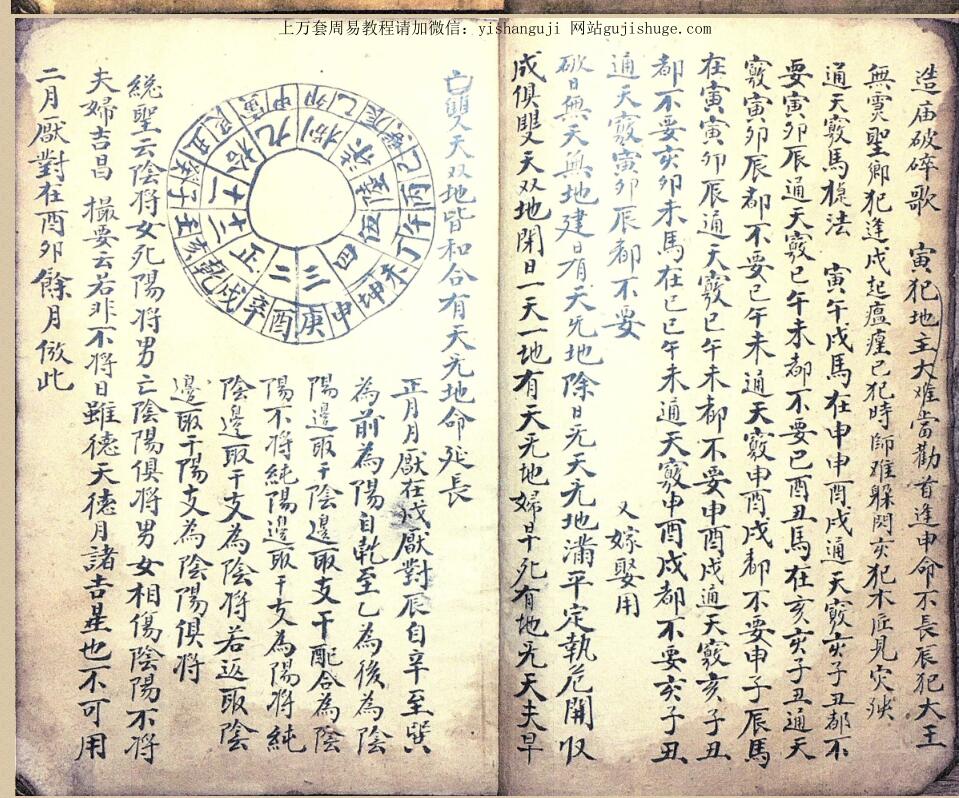 上万套周易教程请加微信：yishanguji 网站gujishuge.com
造庙破碎歌 寅犯地主大难當勸首逢申命不長辰犯大王
無灵聖卯犯逢戌起瘟瘟已犯時師难躲閃亥犯木匠見灾殃
通天竅馬稳法 寅午戌馬在申申酉戌通天竅亥子丑都不
要寅卯辰通天竅巳午未都不要巳酉丑馬在亥亥子丑通天
竅寅卯辰都不要巳午未通天竅申酉戌都不要申子辰馬
在寅寅卯辰通天竅巳午未都不要申酉戌通天竅亥子丑
都不要亥卯未馬在巳巳午未通天竅申酉戌都不要亥子丑
通天竅寅卯辰都不要 又嫁娶用
破日無天無地建日有天无地除日无天无地滿平定執危開收
成俱雙天双地閉日一天一地有天无地婦早死有地无天夫早
亡雙天双地皆和合有天无地命延長
正月月厭在戌厭對辰自辛至巽
為前為陽自乾至乙為後為陰
陽邊取干陰邊取支干配合為陰
陽不將純陽邊取干支為陽將純
陰邊取干支為陰將若返取陰
邊取干陽支為陰陽俱將
統聖云陰將女死陽將男亡陰陽俱將男女相傷陰陽不將
夫婦吉昌 撮要云若非不將日雖德天德月諸吉星也不可用
二月厭對在酉卯餘月倣此
正 二 三 四 五 八 九 十 十一 十二
乾 戌 辛 酉 庚 申 坤 未 丁 午 丙 巳
卯 甲 寅 艮 丑 癸 子 壬 亥